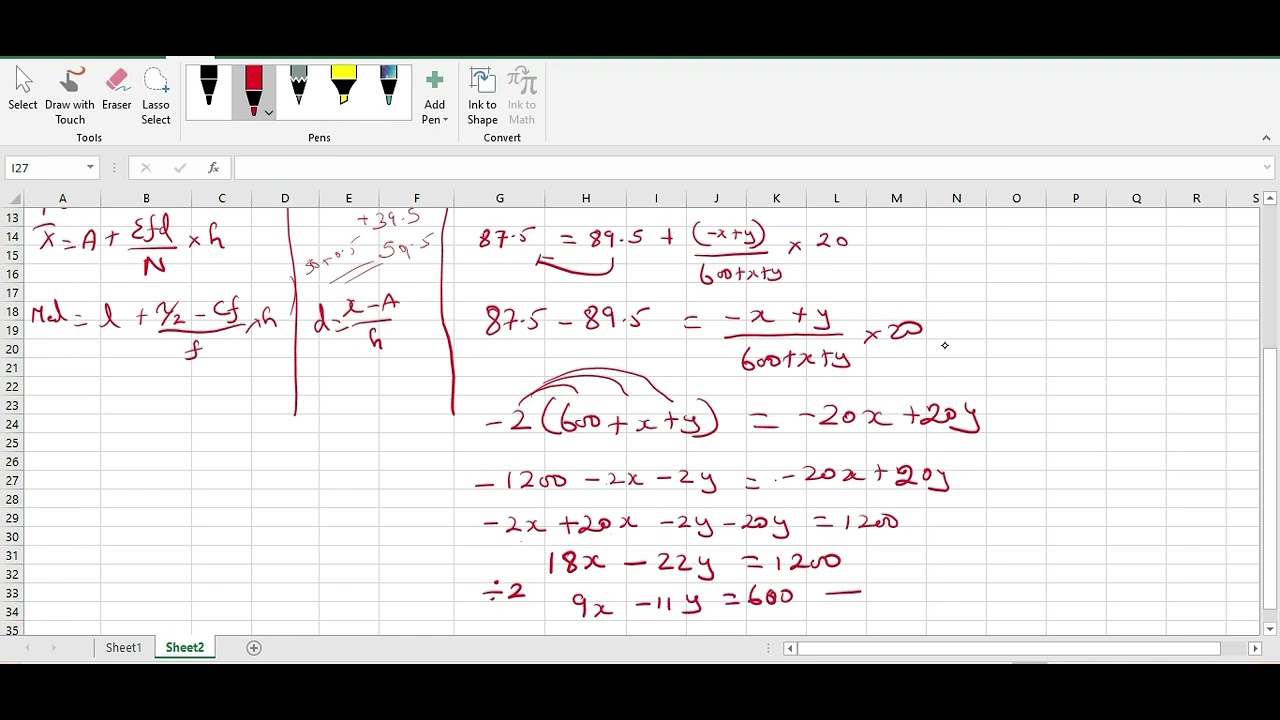 Select Draw with Touch Eraser Lasso Select Add Pen Ink to Shape Ink to Math
Tools Pens Convert
I27 fx
A B C D E F G H I J K L M N O P Q R S
13
14
15
16
17
18
19
20
21
22
23
24
25
26
27
28
29
30
31
32
33
34
35
X̄ = A + Σfd/N × h
Med = l + N/2 - Cf/f × h
+39.5
59.5
d = x-A/h
87.5 = 89.5 + (-x+y)/600+x+y × 20
87.5 - 89.5 = -x + y/600+x+y × 20
-2(600+x+y) = -20x+20y
-1200 -2x -2y = -20x+20y
-2x +20x -2y -20y = 1200
18x - 22y = 1200
÷2 9x -11y = 600 —
Sheet1 Sheet2